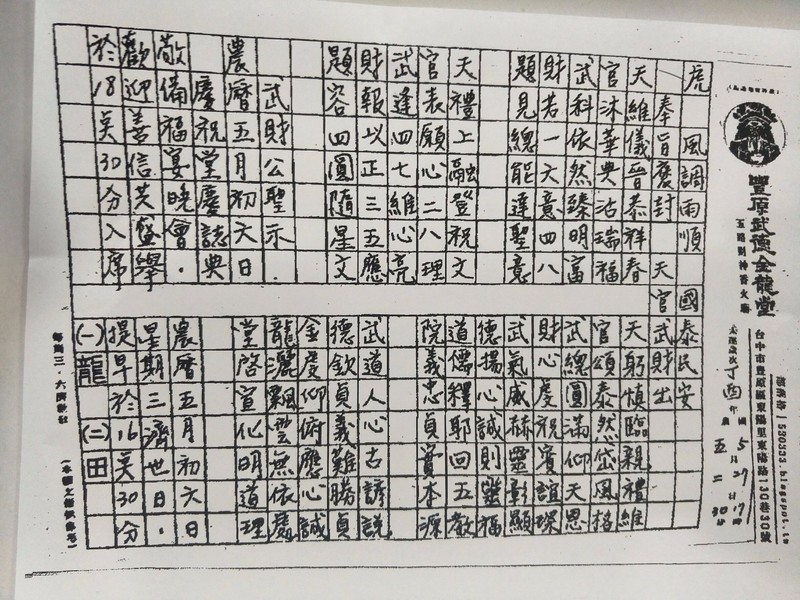 虎 風調雨順 國泰民安
奉旨褒封 天官武財出
天維儀晉泰祥春
官沐華典沾瑞福
武科依然臻明富
財若一六竟四八
題見總能達聖意
天禮上融登祝文
官表願心二八理
武逢四七維心亮
財報以正三五應
題容四圓隨星文
武財公聖示.
農曆五月初六日
慶祝堂慶誌典
敬備福宴晚會.
歡迎善信共盛舉
於18奌30分入席
天躬慎臨親禮維
官頌泰然岱風格
武總圓滿仰天恩
財心慶祝賓誼琛
武氣威赫靈彰顯
德揚心誠則靈福
道儒釋耶回五教
院義忠貞實本源
武道人心古諺說
德欽貞義難勝貞
金度仰俯應心誠
龍灑飄雲無依處
堂啓宣化明道理
農曆五月初六日
星期三濟世日.
提早於16奌30分
(一)龍(二)田
豐原武德金龍堂
五路財神香火廟
台中市豐原區東陽里東陽路130巷30號
部落格:530333.blogspot.tw
天運歲次丁酉年
國 5月27日17時
農 五 二 30分
每週三·六濟世